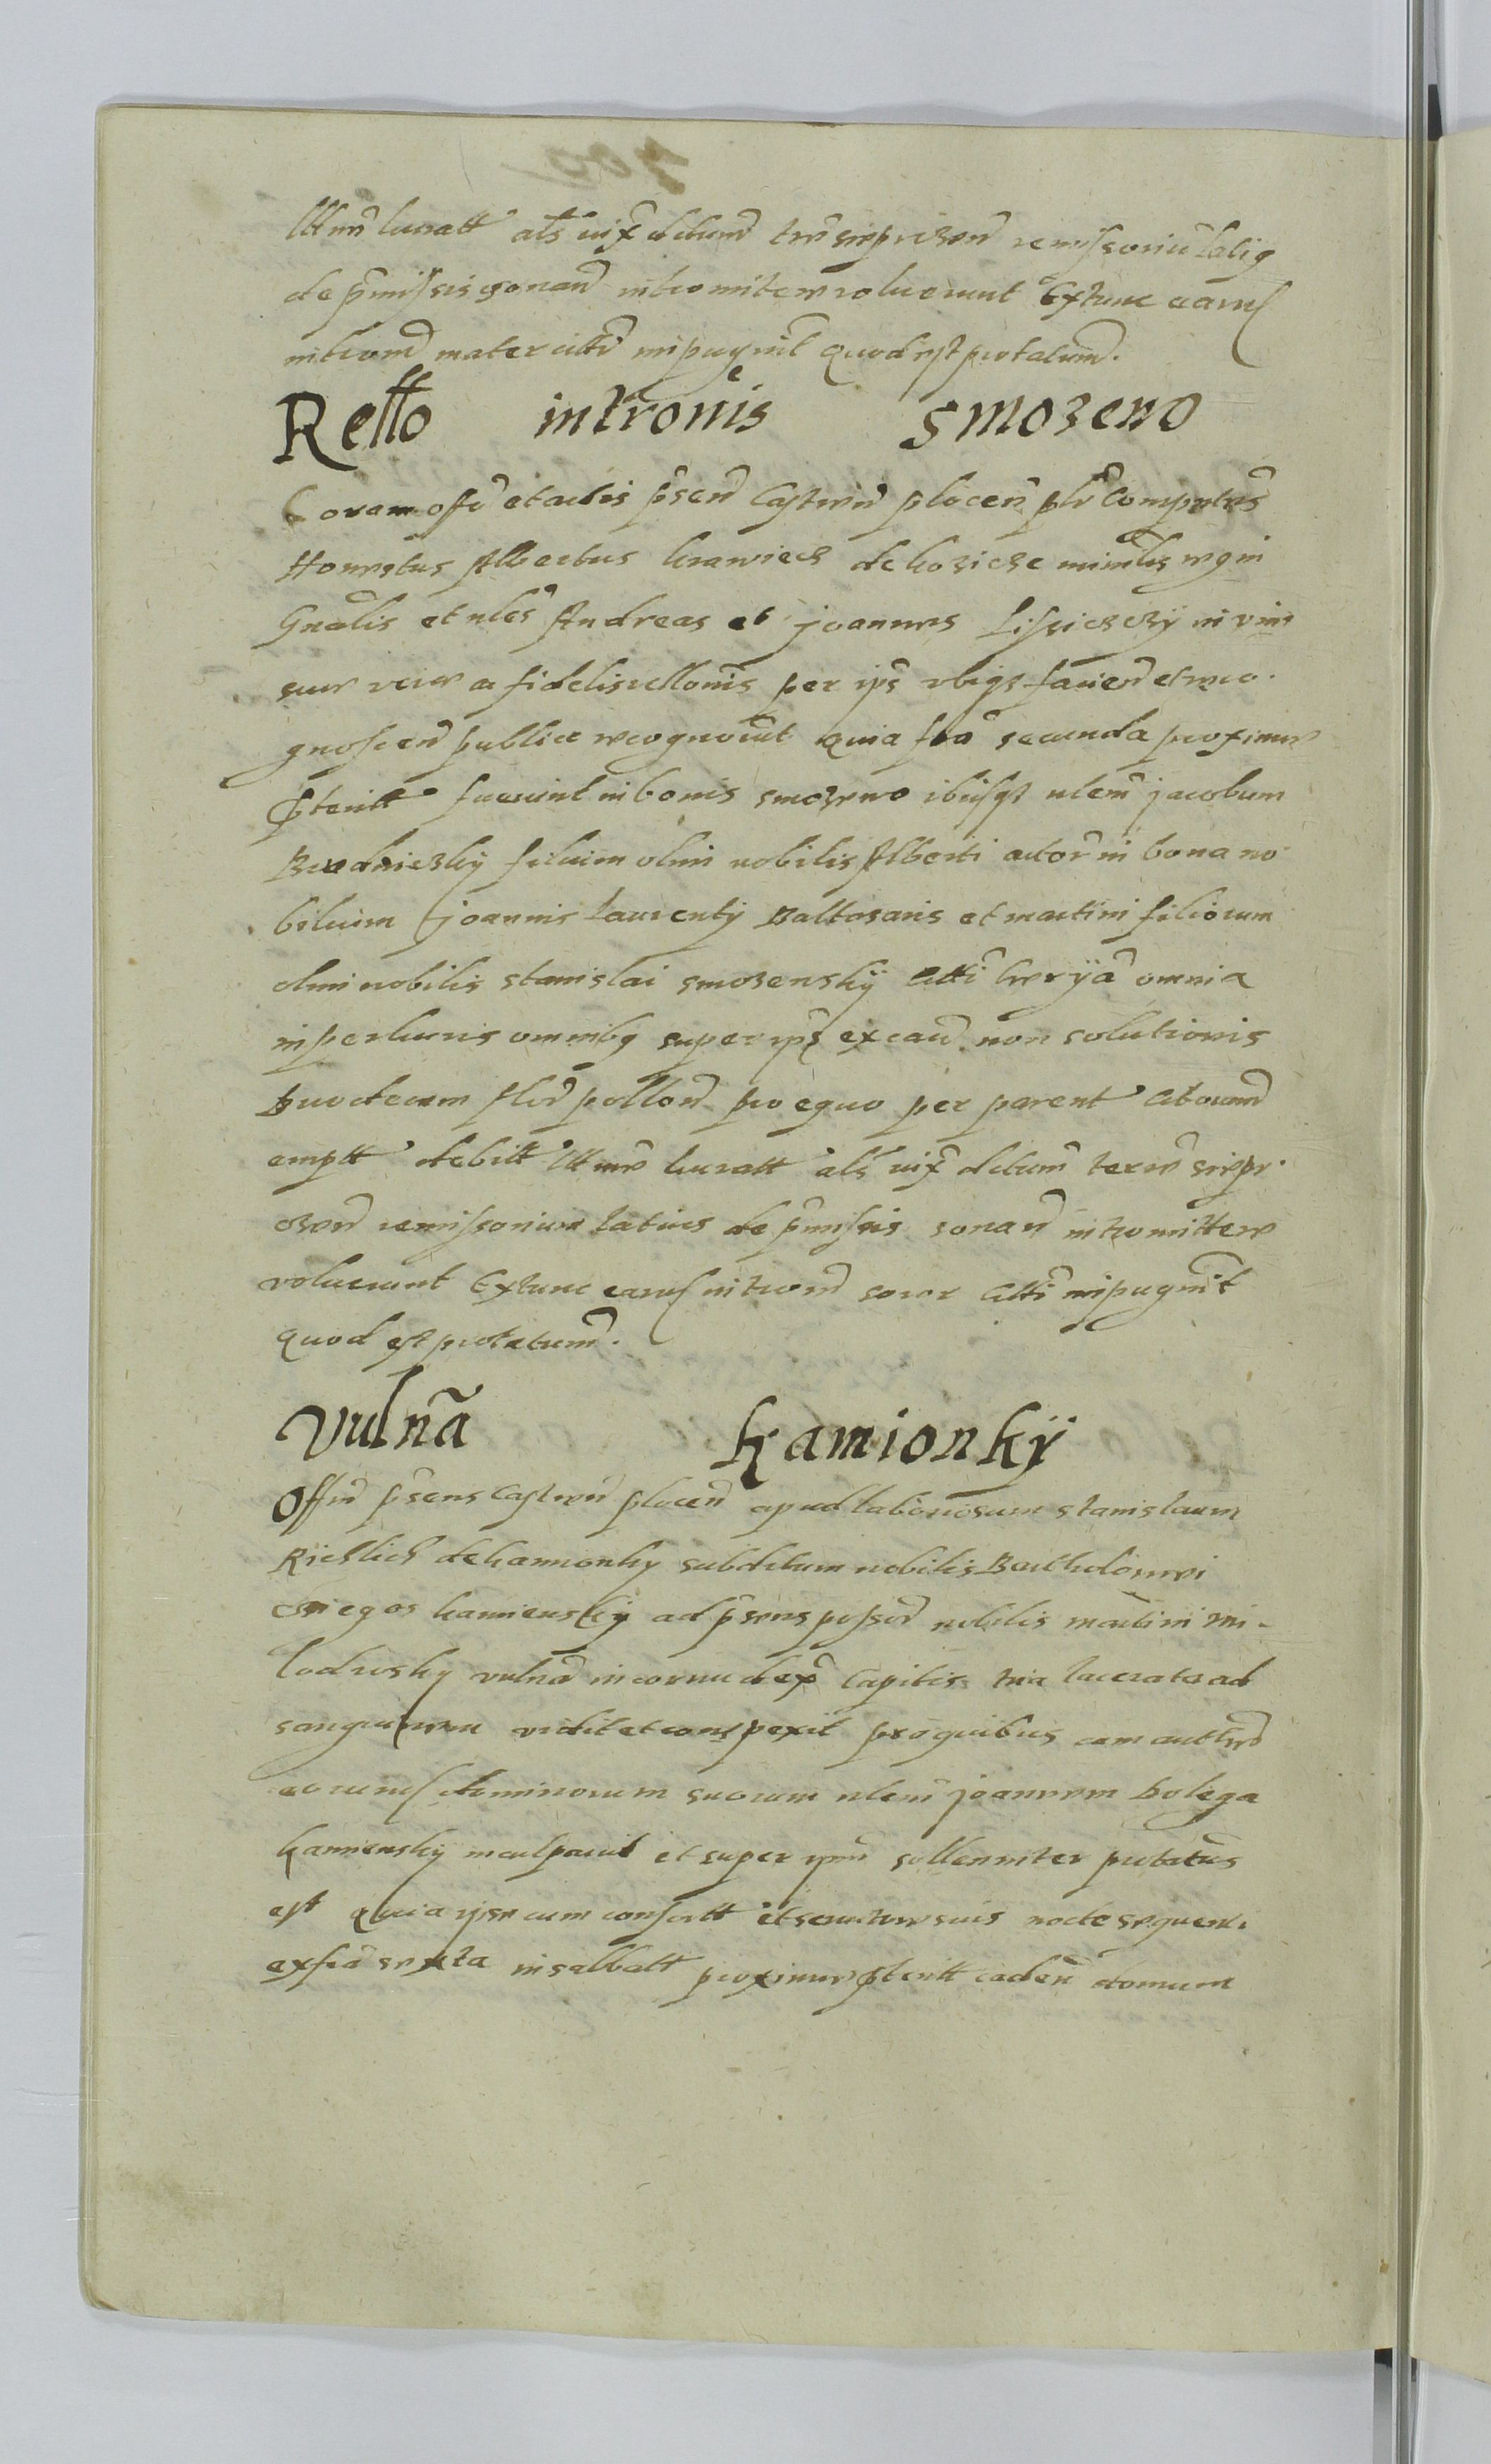 lttm lucratt als iux decretum trm sieprczen remissoriu latig
de pmissis sonan intromittere voluerunt Extunc eand
introm mater citti impugnit quod est protatum.
Rello intronis Smozewo
Coram offo et actis psen Castren plocen plr Comparens
Honestus Albertus krawiecz de kozicze ministlis regni
Gnalis et nles Andreas et joannes Lissiczczÿ in vim
sue vere a fidelis rellonis per ips ubiqz facien et reco
gnoscen publice recognovit quia fia secunda proxime
pteritt fuerunt in bonis smozewo ibiqz nlem jacobum
filium olim nobilis Alberti actor in bona no
bilium joannis Laurentÿ Baltasaris et martini filiorum
olim nobilis stanislai smozewskÿ citti omnia
in perlucris omnibg super ips ex cau non solutionis
duodecim flor pollon pro equo per parent citorum
emptt debitt lttme lucratt als iux decretum term siepr
czen remissorium latius de pmissis sonan intromittere
voluerunt Extunc eand introm soror citti impugnit
quod est protatum.
Vulnã kamionkÿ
Offm psens Castren plocen apud laboriosum stanislaum
de kamionky subditum nobilis Bartholomei
kamienskÿ ad psens possor nobilis martini mi
lodrosky vulnã in cornu dex Capitis tria lacerata ad
sanguinem vidit et conspexit pro quibus cum
eorund dominorum suorum nlem joannem bolega
kamienskÿ inculpavit et super ipm sollenniter protatus
est quia ipse cum consortt et servitore suis nocte sequenti
ex fia sexta in sabbatt proxime pteritt eaden domum